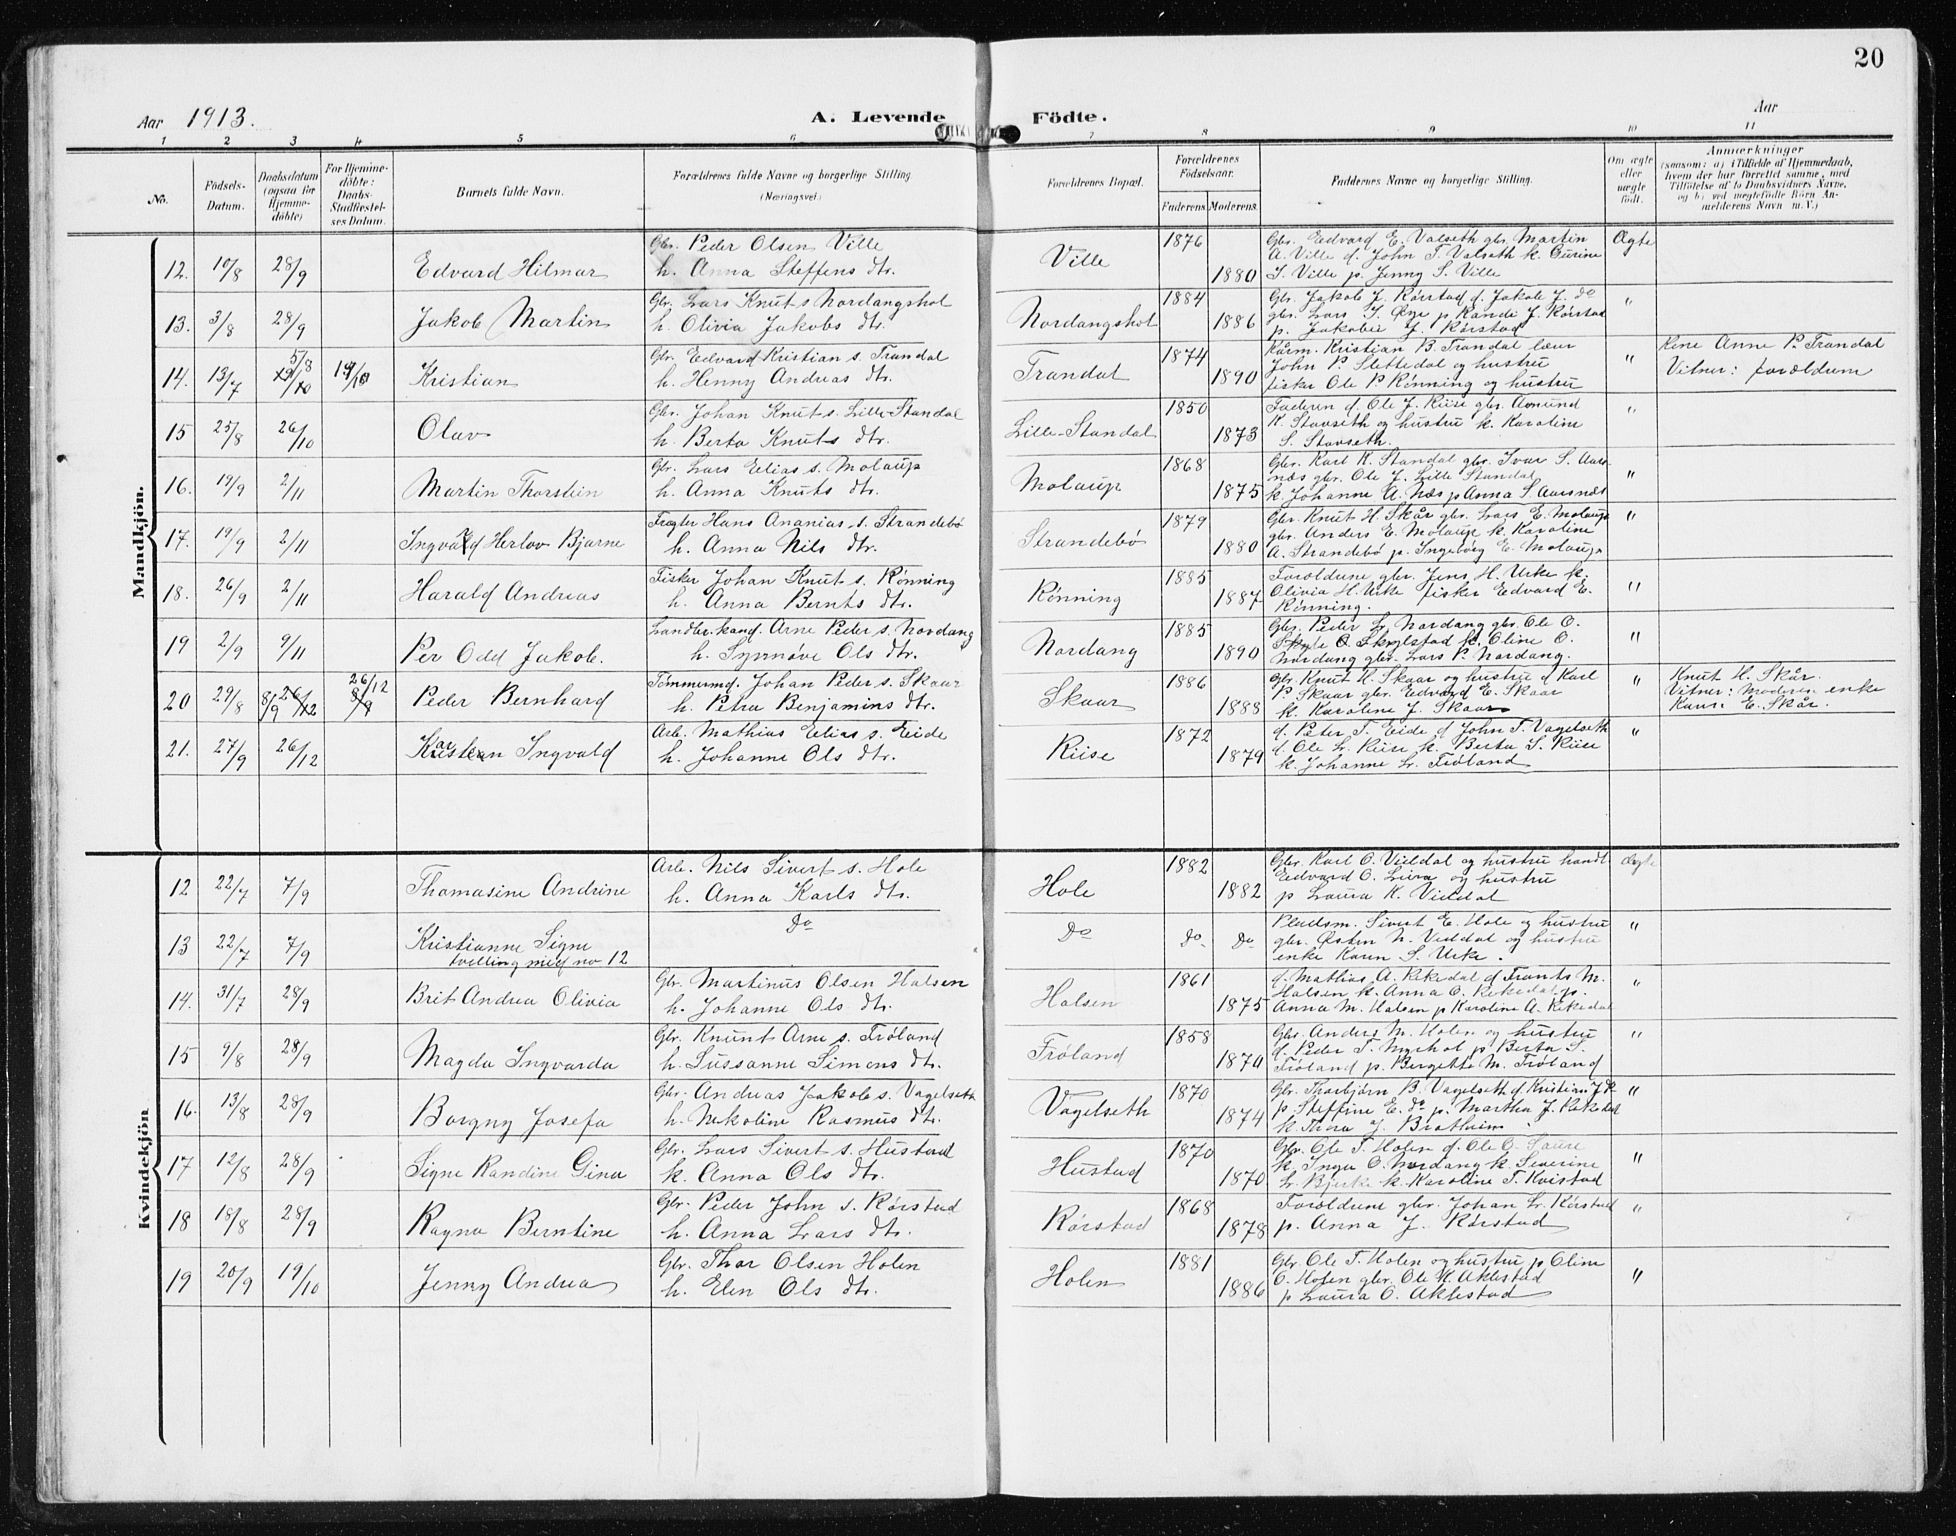 20
Aar 1913.
A. Levende Födte.
Aar
1 2 3 4 5 6 7 8 9 10 11
No.
Födsels-Datum.
Daabsdatum (ogsaa for Hjemmedöbte)
For Hjemmedöbte: Daabs-Stadfæstelses Datum.
Barnets fulde Navn.
Forældrenes fulde Navne og borgerlige Stilling (Næringsvei.)
Forældrenes Bopæl.
Forældrenes Födselsaar.
Faderens. Moderens.
Faddernes Navne og borgerlige Stilling.
Om ægte eller uægte födt.
Anmærkninger
(saasom: a) i Tilfælde af Hjemmedaab, hvem der har forrettet samme, med Tilföielse af to Daabsvidners Navne, og b) ved uægtefödte Börn Anmelderens Navn m. V.)
Mandkjön.
12. 10/8 28/9 Edvard Hilmar
Gbr. Peder Olsen Ville
h. Anna Steffens dtr.
Ville 1876 1880
Gbr. Edvard E. Valseth gbr. Martin
A. Ville d. John T. Valseth k. Gurine
S. Ville p. Jenny S. Ville
Ægte
13. 3/8 28/9 Jakob Martin
Gbr. Lars Knut s. Nordangshol
h. Olivia Jakobs dtr.
Nordangshol 1884 1886
Gbr. Jakob J. Rørstad d. Jakob J. do
gbr. Lars J. Øye p Randi J. Rørstad
p. Jakobie J. Rørstad
"
14. 13/7 5/8 19/10 Kristian
Gbr. Edvard Kristian s. Trandal
h. Henny Andreas dtr.
Trandal 1874 1890
Kårm. Kristian B. Trandal læur
John P. Slettedal og hustru
fisker Ole P. Rønning og hustru
"
Anne P. Trandal
Vitner: forældrem
15 25/8 26/10 Olav
Gbr. Johan Knut s. Lille-Standal
h. Berta Knuts dtr.
Lille-Standal 1850 1873
Faderen d. Ole J. Riise gbr. Amund
K. Stavseth og hustru k. Karoline
S. Stavseth.
"
16. 19/9 2/11 Martin Thorstein
Gbr. Lars Elias s. Molaup
h. Anna Knuts dtr.
Molaup 1868 1875
Gbr. Karl K. Standal gbr. Ivar S. Aarsnæs gbr. Ole J. Lille Standal
k Johanne A. Næs p Anna S. Aarsnæs
"
17. 19/9 2/11 Ingvald Herlov Bjarne
Fragter Hans Ananias s. Strandebø
h. Anna Nils dtr.
Strandebø 1879 1880
Gbr. Knut H. Skår gbr. Lars E. Molaup
gbr. Anders E. Molaup k. Karoline
A. Strandebø p. Ingeborg E. Molaup
"
18. 26/9 2/11 Harald Andreas
Fisker Johan Knut s. Rønning
h. Anna Bernts dtr.
Rønning 1885 1887
Foroldrene gbr. Jens H. Urke k.
Olivia H. Urke fisker Edvard E.
Rønning.
"
19 2/9 9/11 Per Odd Jakob.
Landbr. kand. Arne Peder s. Nordang
h. Synnøve Ols dtr.
Nordang 1885 1890
Gbr. Peder Nordang gbr. Ole O.
Skylstad k. Oline O.
Nordang gbr. Lars P. Nordang.
"
20 29/8 8/9 26/12 Peder Bernhard
Tømmermd. Johan Peder s. Skaar
h. Petra Benjamins dtr.
Skaar 1886 1888
Gbr. Knut H. Skaar og hustru d Karl
P. Skaar gbr. Edvard E. Skaar
k. Karoline J. Skaar
"
Knut H. Skår.
Vitner: Moderen enke
E. Skår.
21. 27/9 26/12 Karsten Ingvald
Arb. Mathias Elias s. Eide
h. Johanne Ols dtr.
Riise 1872 1879
d. Peter T. Eide d John T. Vagelseth
d Ole L. Riise k. Berta S. Riise
k. Johanne L. Frøland
"
Kvindekjön
12 22/7 7/9 Thomasine Andrine
Arb. Nils Sivert s. Hole
h. Anna Karls dtr.
Hole 1882 1882
Gbr. Karl O. Viddal og hustru handl
Edvard O. Liøra og hustru
p Laura K. Viddal
Ægte
13 22/7 7/9 Kristianne Signe
tvilling med no 12
Do
Do Do. Do
Pladsm. Sivert E. Hole og hustru
gbr. Østen N. Viddal og hustru
enke Karen S. Urke.
"
14. 31/7 28/9 Brit Andrea Olivia
Gbr. Martinus Olsen Halsen
h. Johanne Ols dtr.
Halsen 1861 1875
d. Mathias A. Rekedal d Frants M.
Halsen k. Anna O. Rekedal p.
Anna M. Halsen p Karoline A. Rekedal
"
15 9/8 28/9 Magda Ingvarda
Gbr. Knunt Arne s. Frøland
h. Sussanne Simons dtr.
Frøland 1858 1870
Gbr. Anders M. Holen og hustru
d. Peder T. Myrhol p Berta S.
Frøland p Bergitte M. Frøland
"
16. 13/8 28/9 Borgny Josefa
Gbr. Andreas Jakob s. Vagelseth
h. Nekoline Rasmus dtr.
Vagelseth 1870 1874
Gbr. Thorbjørn B. Vagelseth d Kristian J do
p. Steffine E. do p. Martha J. Rekedal
k Thora J. Bratheim.
"
17 12/8 28/9 Signe Randine Gina
Gbr. Lars Sivert s. Hustad
k. Anna Ols dtr.
Hustad 1870 1870
Gbr. Ole T. Holen d. Ole O. Saure
k. Inga O. Nordang k. Severine
L. Bjerke k. Karoline T. Kvistad
"
18 18/8 28/9 Ragna Berntine
Gbr. Peder John s. Rørstad
h. Anna Lars dtr.
Rørstad 1868 1878
Foroldrene gbr. Johan L. Rørstad
p. Anna J. Rørstad
"
19 20/9 19/10 Jenny Andrea
Gbr. Thor Olsen Holen
h. Elen Ols dtr.
Holen 1881 1886
Gbr Ole T. Holen og hustru p Oline
O. Holen gbr. Ole K. Aklestad
p Laura O. Aklestad
"